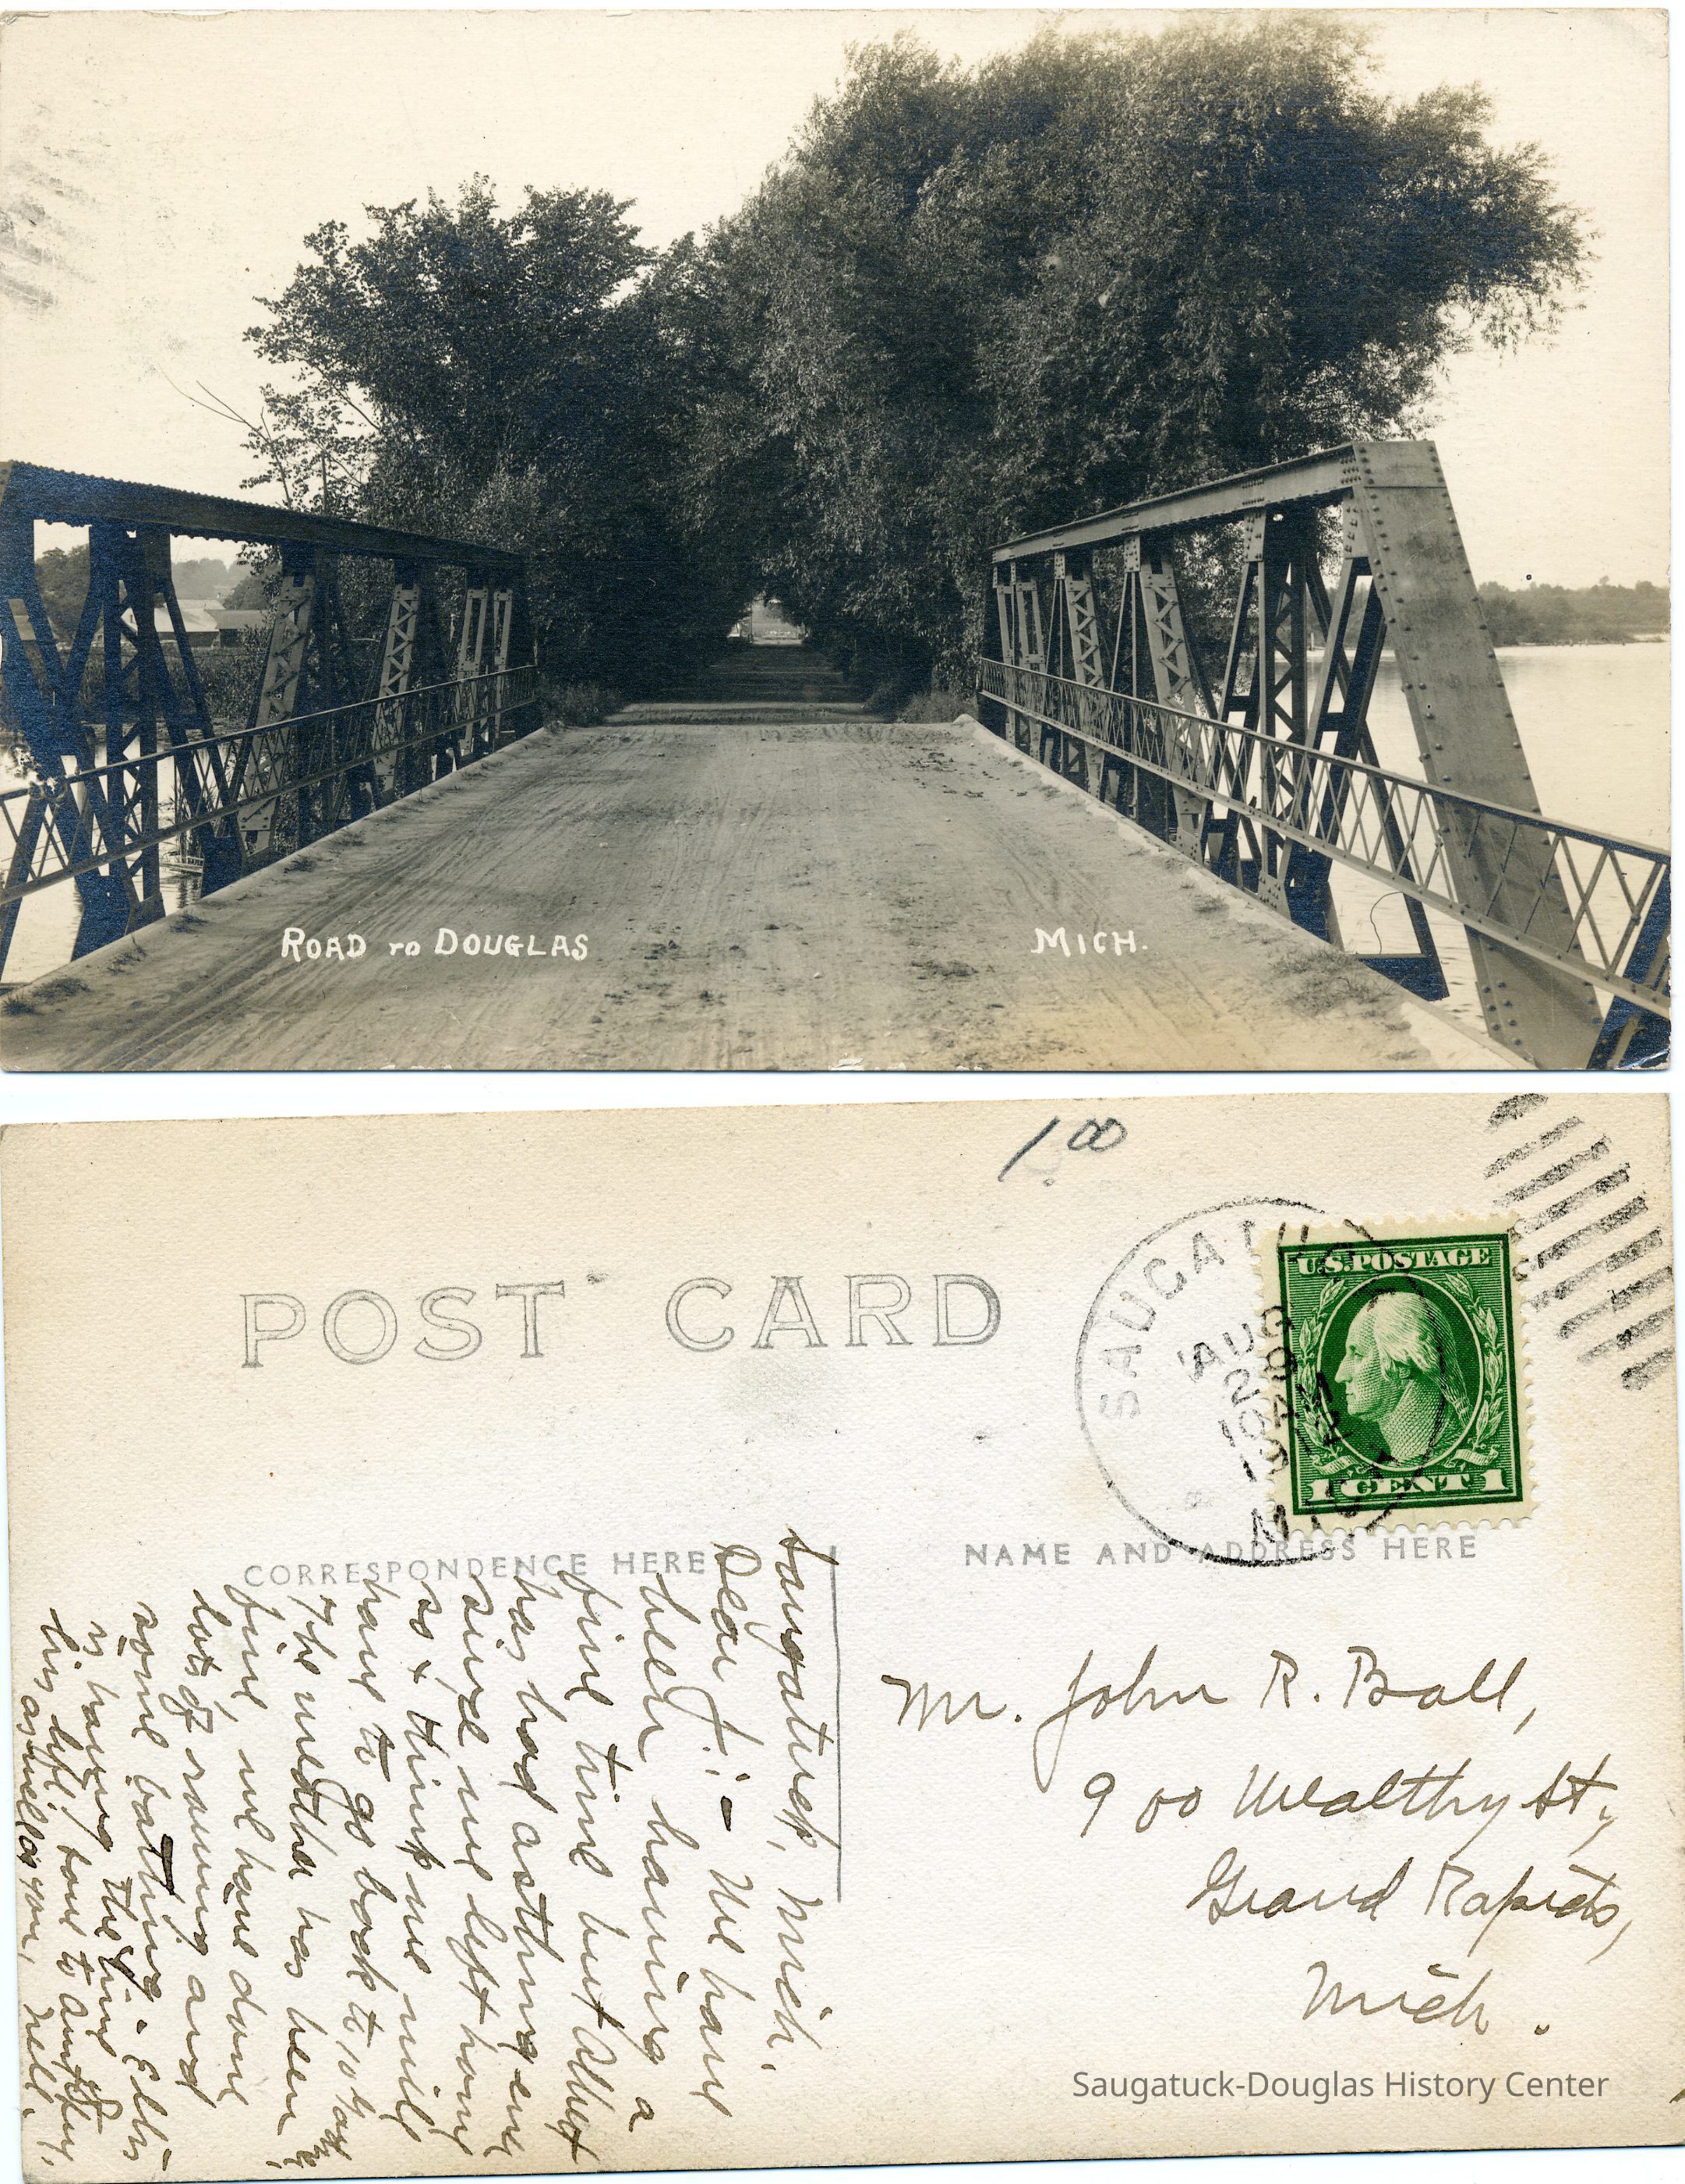 ROAD TO DOUGLAS MICH.
1.00
POST CARD
SAUGATUCK
AUG
28
10 AM
MICH
U.S. POSTAGE
1 CENT 1
CORRESPONDENCE HERE
NAME AND ADDRESS HERE
Saugatuck, Mich.
Dear J:- We have
been having a
fine time but Albert
has had asthma ever
since we left home
so & think we will
have to go back to
The weather has been
fine, we have done
lots of rowing and
some bathing. Ellis
is having the time of
his life, love to
as well as you, Nell.
Mr. John R. Ball,
900 Wealthy St.,
Grand Rapids,
Mich.
Saugatuck-Douglas History Center